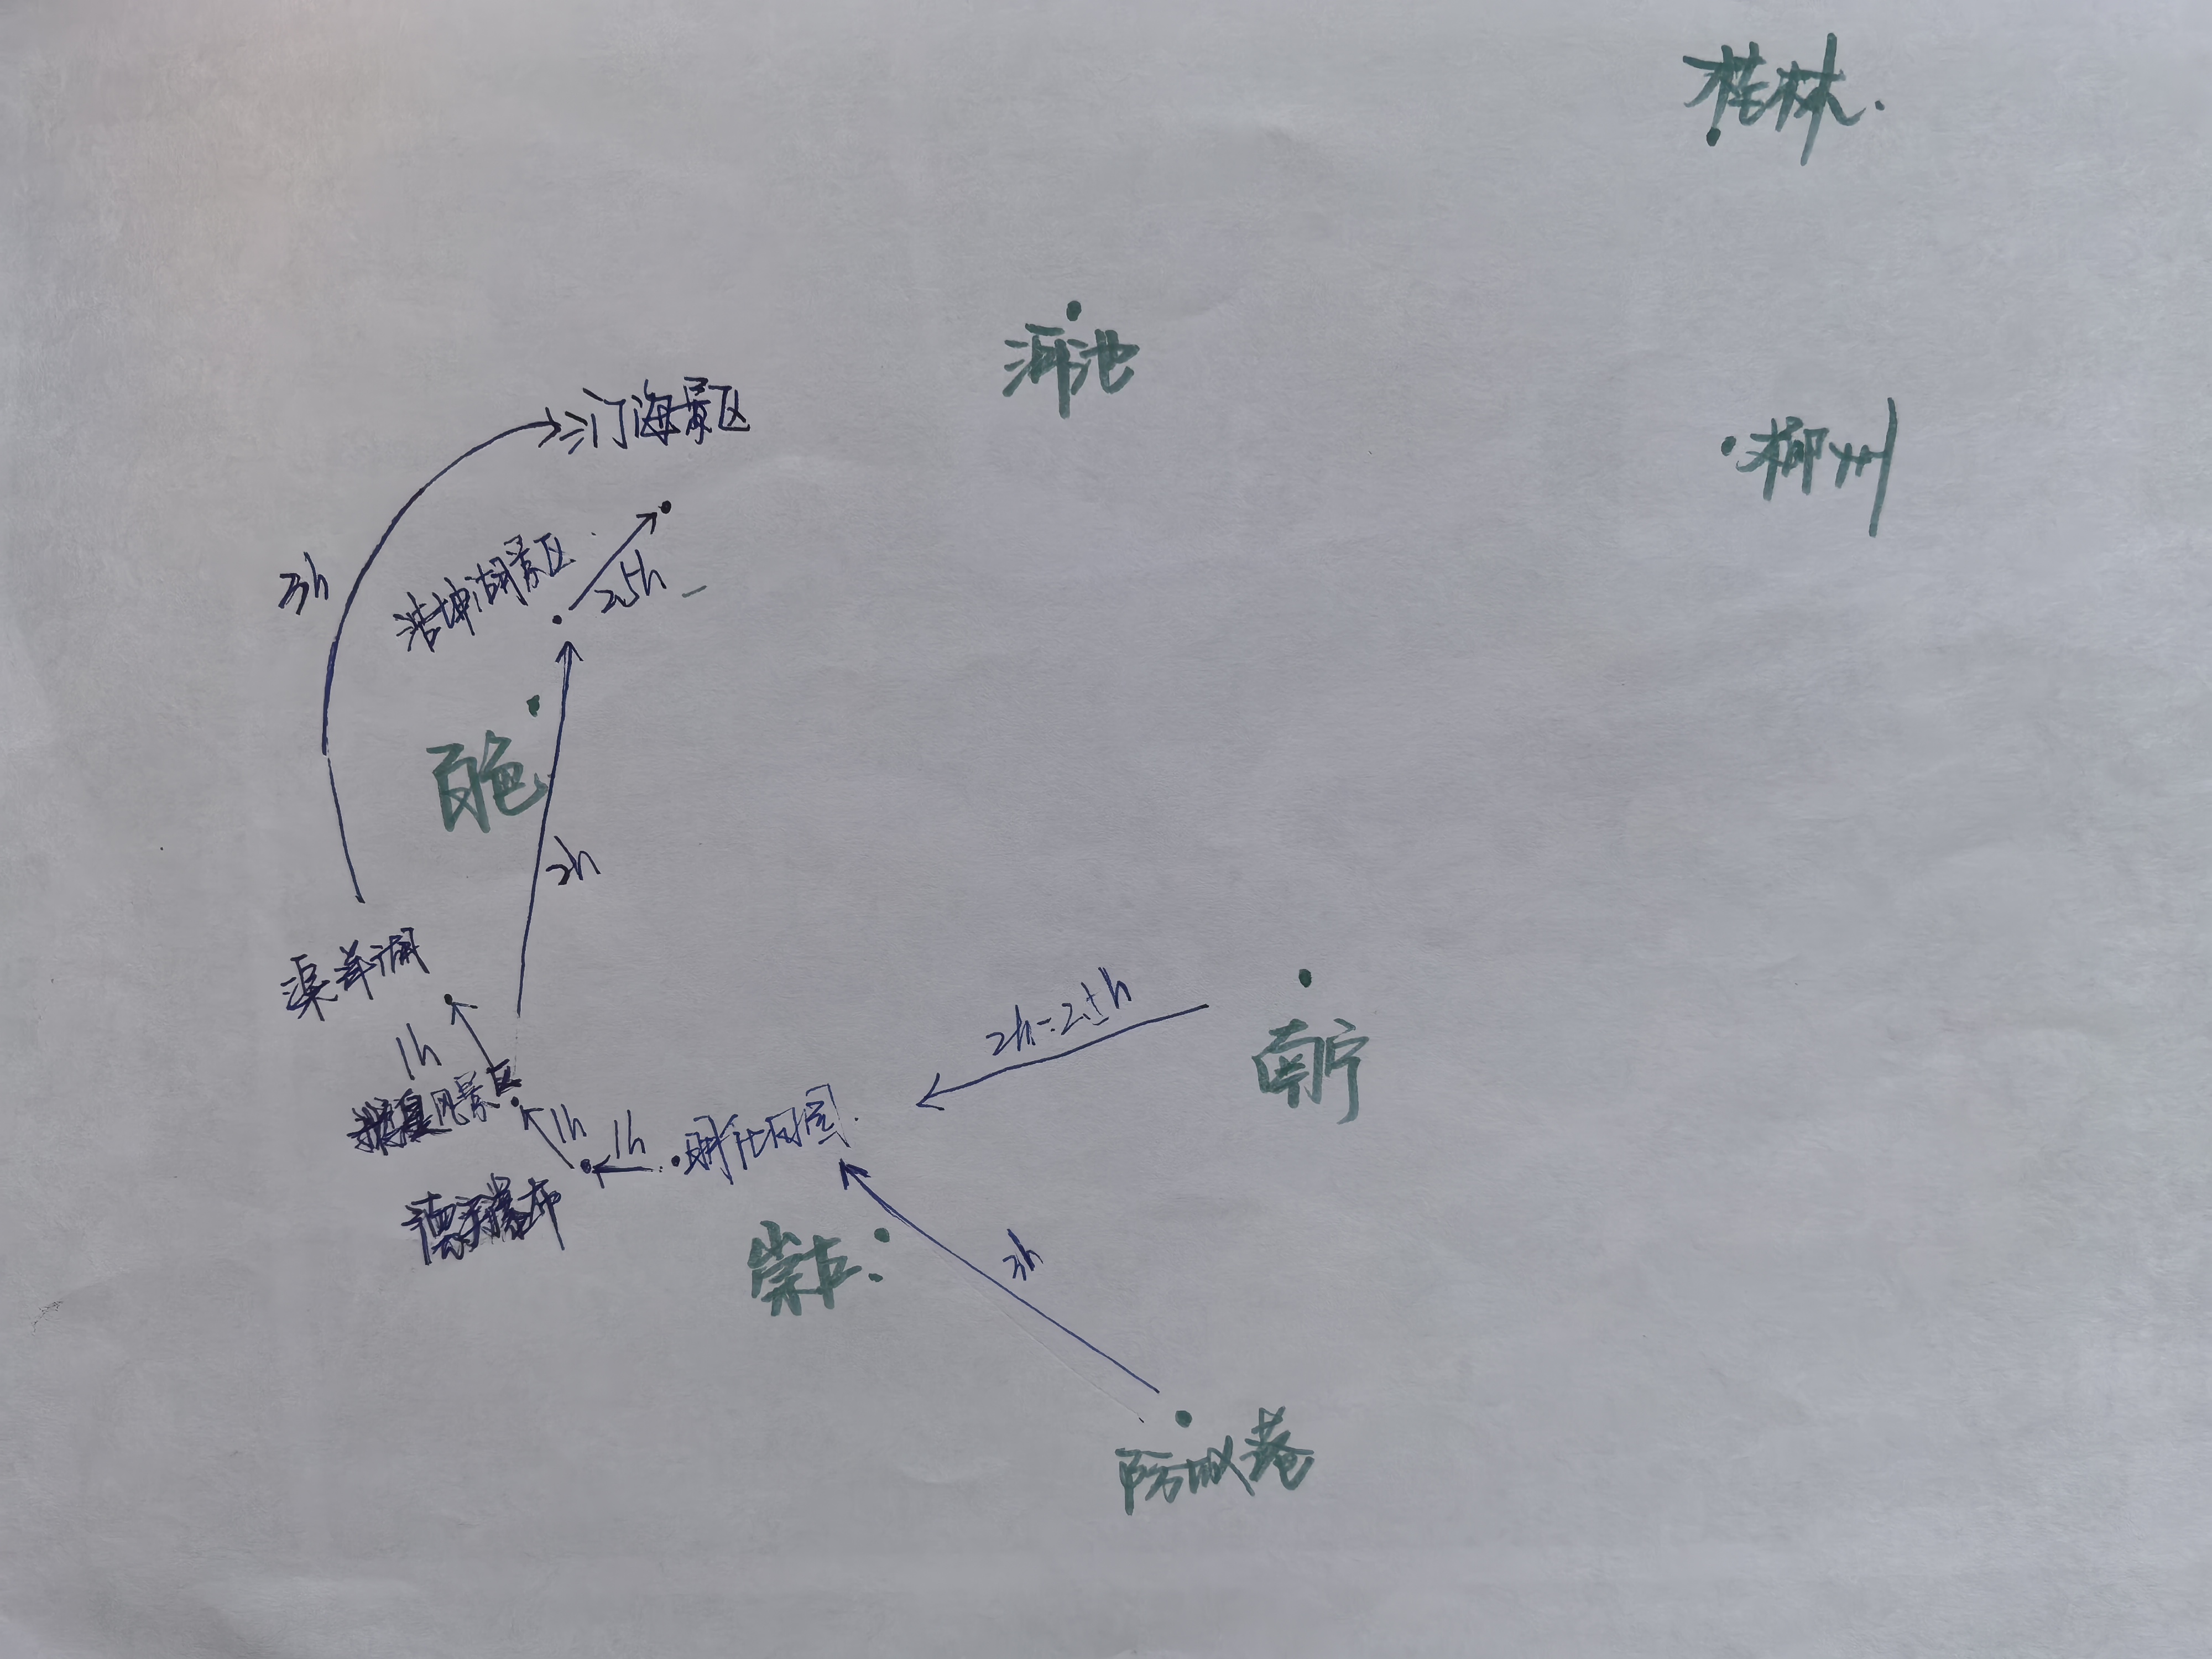 桂林.
河池
柳州
三门海景区
浩坤湖景区
2.5h
3h
百色
2h
渠洋湖
1h
南宁
2h-2.5h
风景区
1h
1h
明仕田园
德天瀑布
崇左
3h
防城港